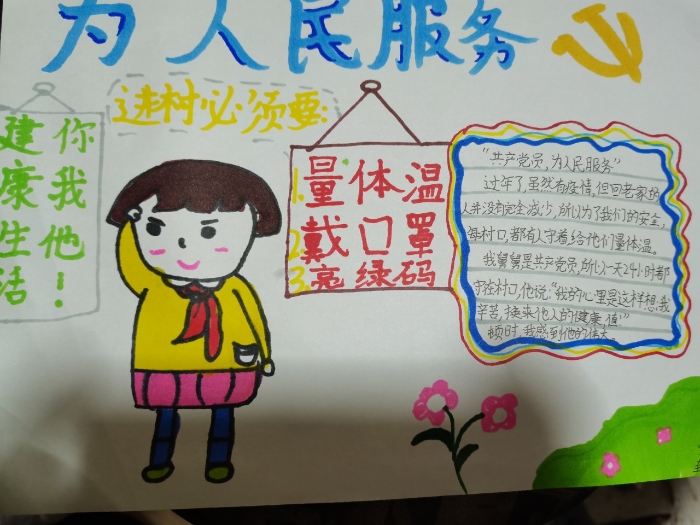 为人民服务
进村必须要:
你我他!
建康生活
1.量体温
2.戴口罩
3.亮绿码
“共产党员,为人民服务”
过年了,虽然有疫情,但回老家的
人并没有完全减少,所以为了我们的安全,
每村口,都有人守着给他们量体温。
我舅舅是共产党员,所以一天24小时都
守在村口,他说:“我的心里是这样想,我
辛苦,换来他人的健康,值!”
顿时,我感到他的伟大。